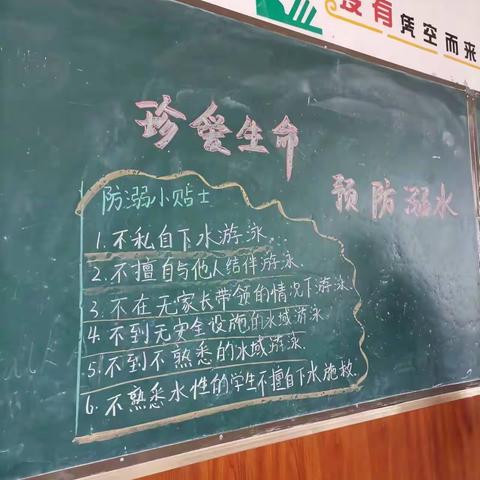 没有凭空而来
珍爱生命
预防溺水
防溺小贴士
1.不私自下水游泳.
2.不擅自与他人结伴游泳.
3.不在无家长带领的情况下游泳.
4.不到无安全设施的水域游泳.
5.不到不熟悉的水域游泳.
6.不熟悉水性的学生不擅自下水施救.